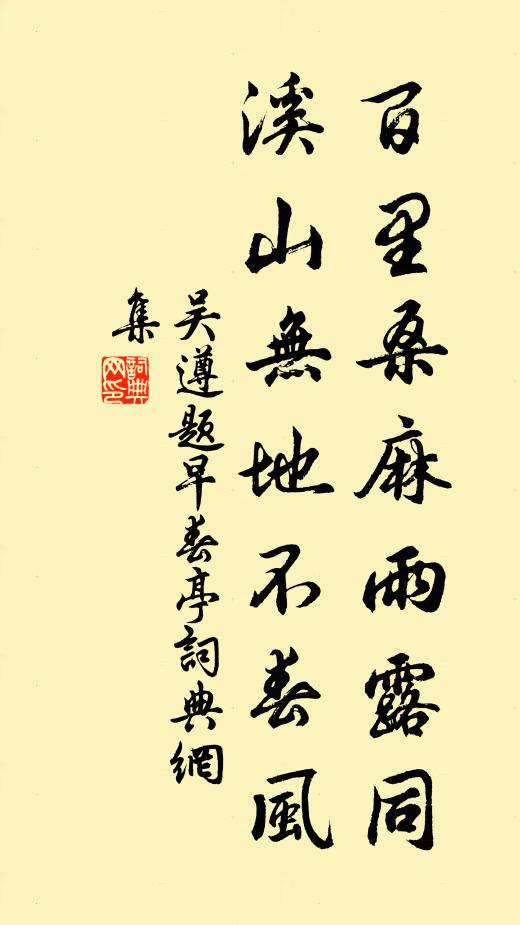 百里桑麻雨露同
溪山無地不春風
吴遵題早春亭詞典網
集
詞典
网印